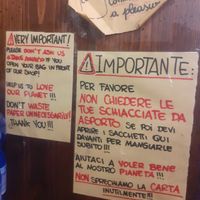 a pleasure
VERY IMPORTANT!
PLEASE DON'T ASK US
IF YOU
OPEN YOUR BAG IN FRONT
OF OUR SHOP!
HELP US TO LOVE
OUR PLANET!!!
DON'T WASTE
PAPER UNNECESSARILY!
THANK YOU!!!
IMPORTANTE:
PER FAVORE
NON CHIEDERE LE
TUE SCHIACCIATE DA
ASPORTO SE POI DEVI
APRIRE I SACCHETTI QUI
DAVANTI PER MANGIARLE
SUBITO!!!
AIUTACI A VOLER BENE
AL NOSTRO PIANETA!!!
NON SPRECHIAMO LA CARTA
INUTILMENTE!!!